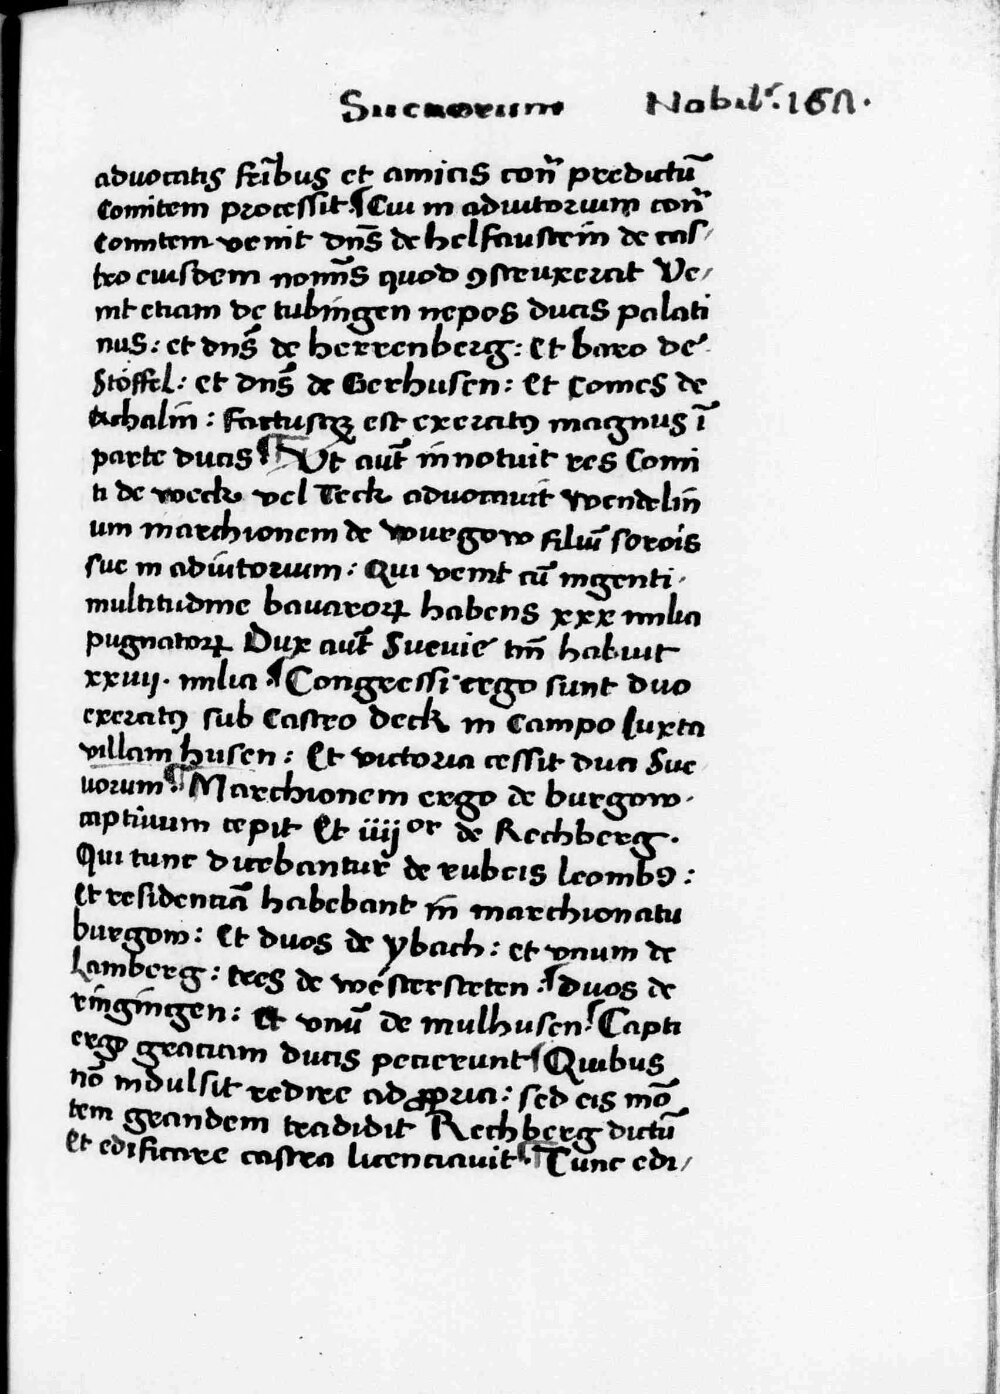 Sueuorum Nobil͛. 167.
advocatis fr̄ibus et amicis cont̄ predictū
Comitem processit. ¶ Cui in adiutorium cont̄
Comitem venit dn̄s de helfaustein de cas/
tro eiusdem nomīs quod ꝯstruxerat Ve/
nit etiam de tubingen nepos ducis palati
nus: et dn̄s de herrenberg: Et baro de
Stöffel: et dn̄s de Gerhusen: Et Comes de
Achalin: Factusqꝫ est exercitꝰ magnus ī
parte ducis. ¶ Vt aut̄ innotuit res Comi
ti de weck vel Teck advocauit wendelin
um marchionem de wurgow filiū sororis
sue in adiutorium: Qui venit cū ingenti
multitudine bavaroꝝ habens xxx milia
pugnatoꝝ Dux aut̄ Suevie tm̄ habuit
xxvij. milia. ¶ Congressi ergo sunt duo
exercitꝰ sub Castro deck in Campo Iuxta
villam husen: Et victoria cessit duci Sue
uorum. ¶ Marchionem ergo de burgow
captiuum cepit Et iiijor de Rechberg.
Qui tunc dicebantur de rubeis leombꝰ:
Et residenciā habebant in marchionatu
burgow: Et duos de ybach: et vnum de
Lamberg: tres de wéstersteten. ¶ duos de
ringingen: Et vnū de mulhusen. ¶ Capti
ergo graciam ducis pecierunt ¶ Quibus
nō indulsit redire ad ꝓpria: sed eis mō
tem grandem tradidit Rechberg dictū
Et edificare castra licenciauit. ¶ Tunc edi/